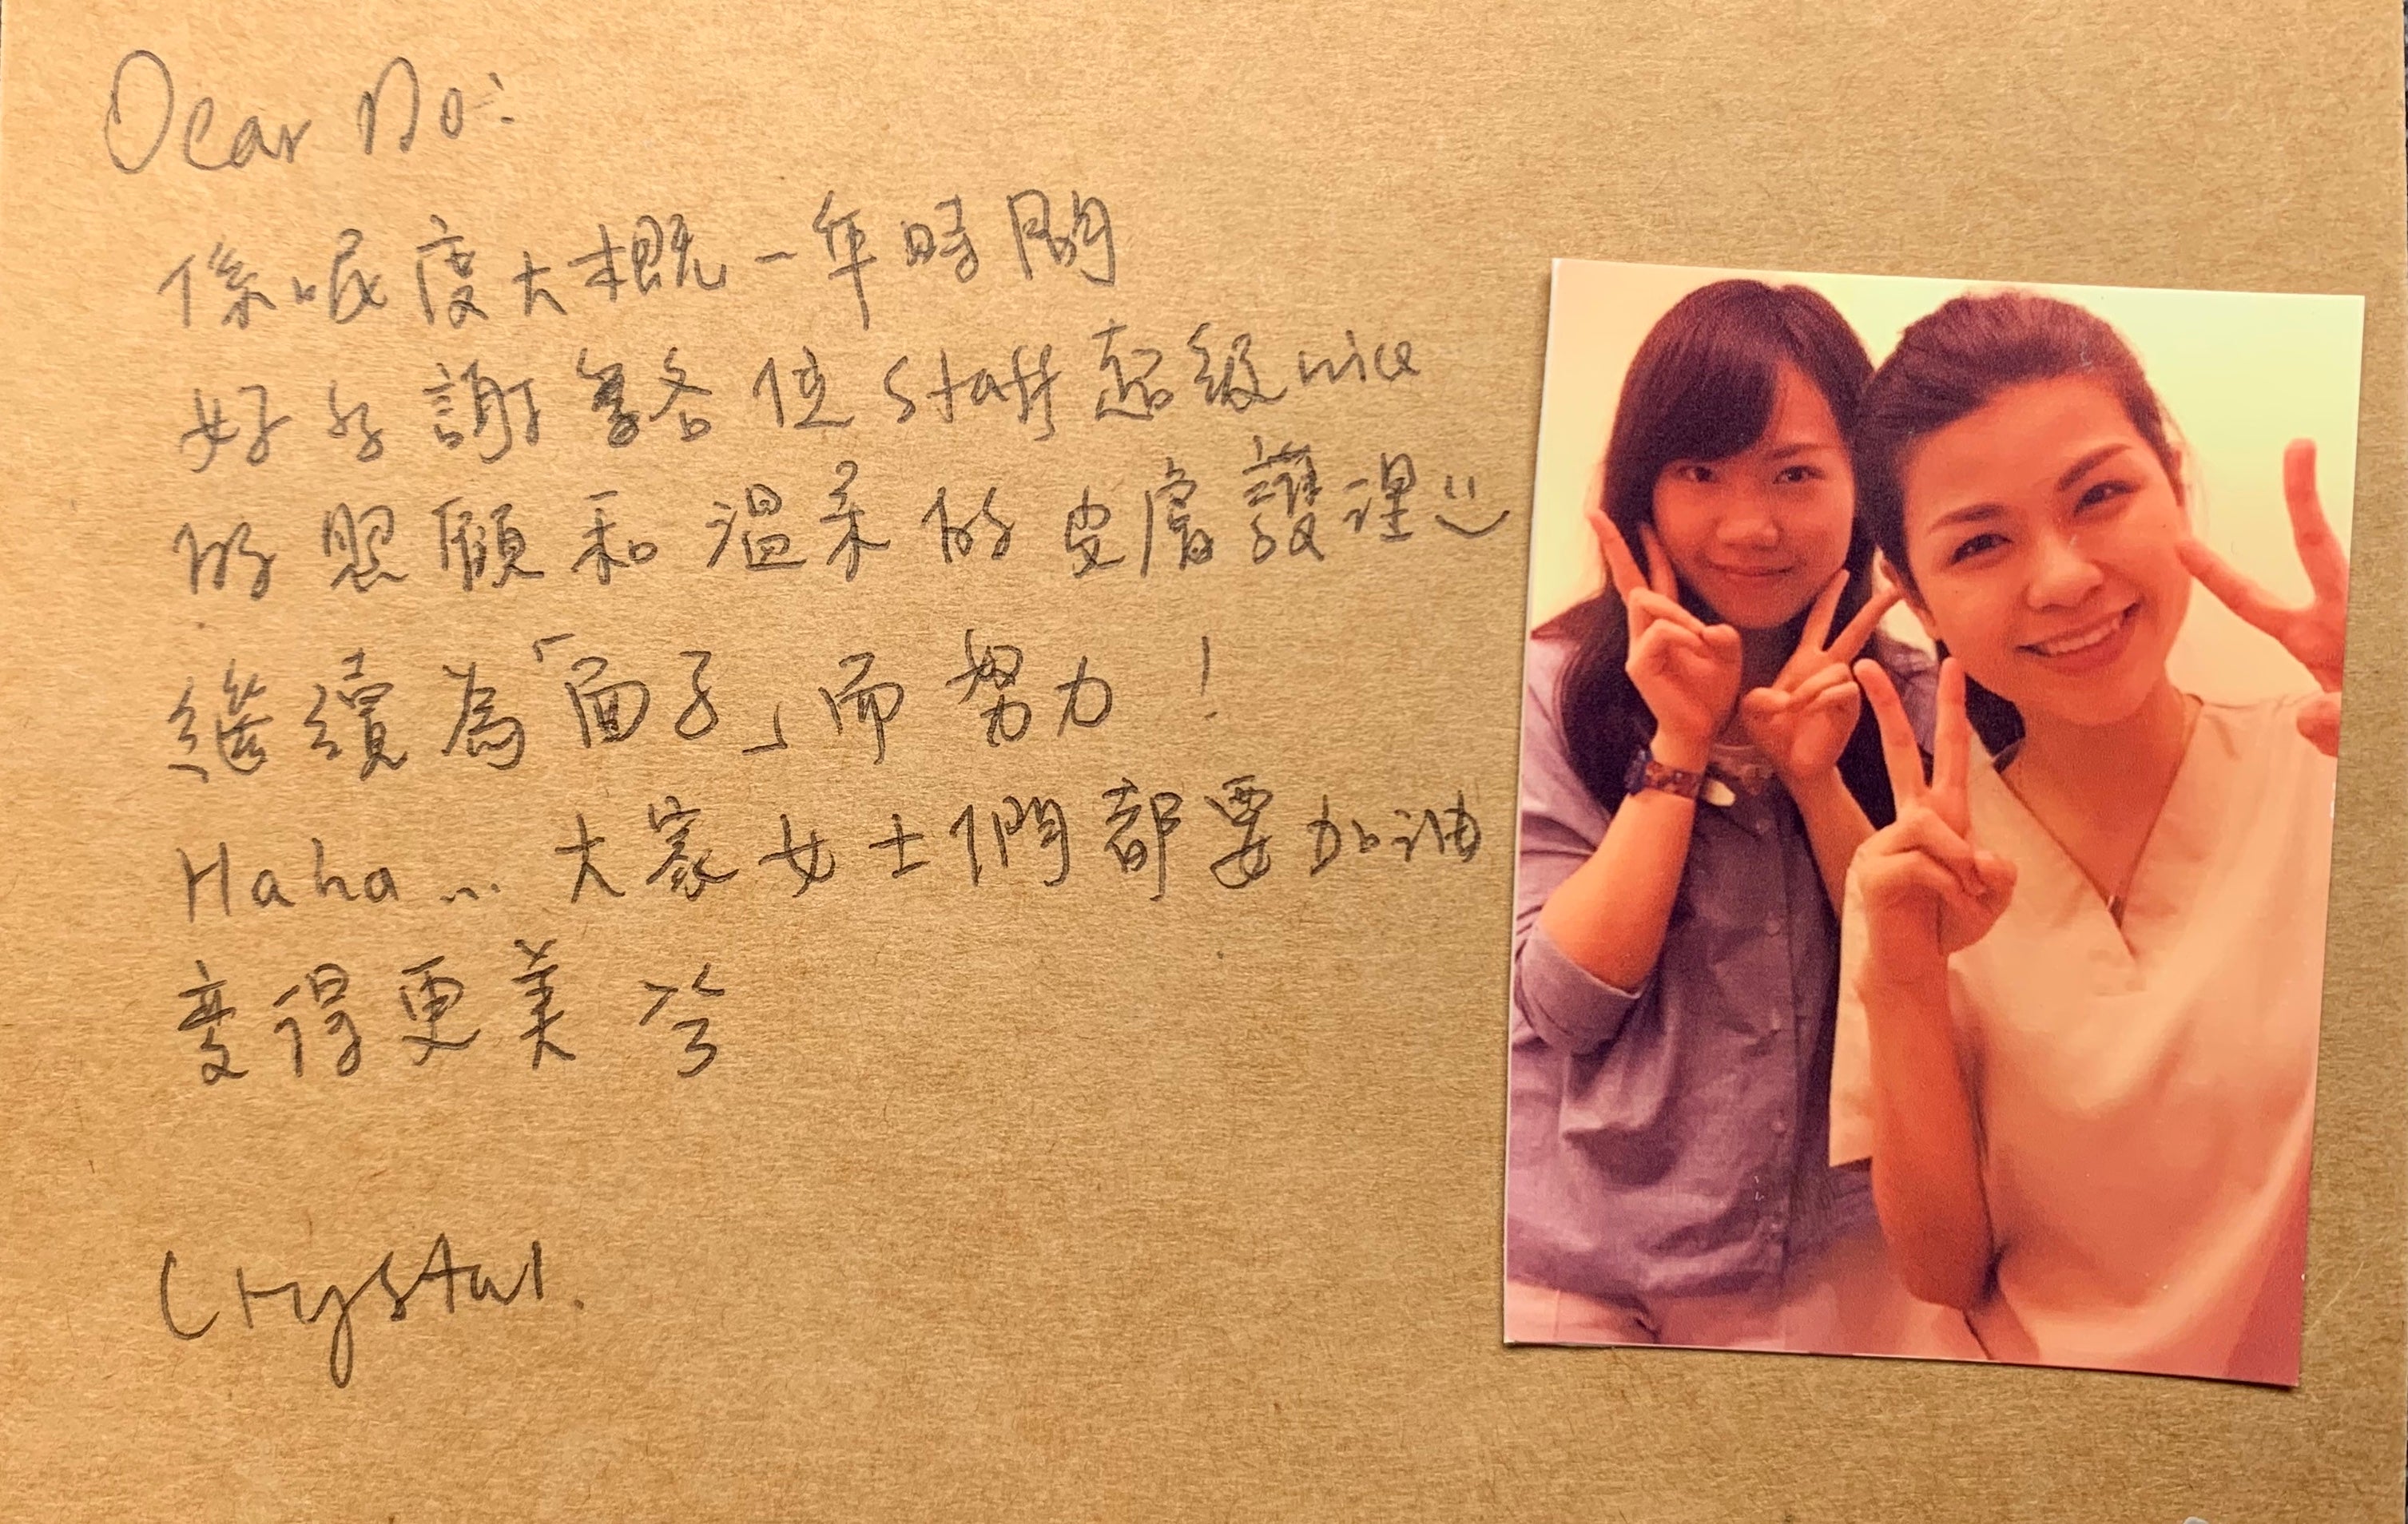 Dear No:
係呢度大概一年時間
好多謝各位 staff 超級 nice
的照顧和溫柔的皮膚護理
繼續為「面子」而努力！
Haha... 大家女士們都要加油
變得更美兮
Crystal.